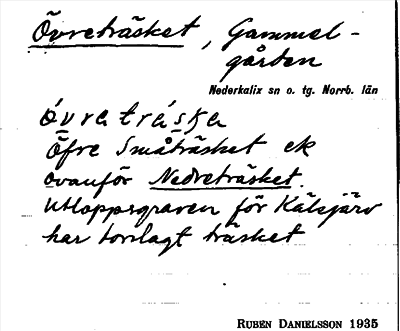 Övreträsket, Gammel-
gården
Nederkalix sn o. tg. Norrb. län
óvre tráska
Öfre Småträsket ek
ovanför Nedreträsket.
Utloppsgraven för Kälsjärv
har torrlagt träsket
RUBEN DANIELSSON 1935